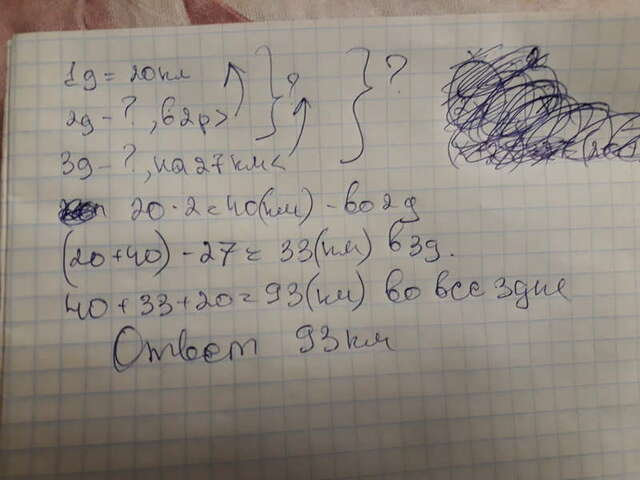 1д = 20км
2д - ?, в 2р > } ?
3д - ?, на 27км < } ?
20 · 2 = 40(км) - во 2д
(20+40) - 27 = 33(км) в 3д.
40 + 33 + 20 = 93(км) во все 3 дне
Ответ 93 км